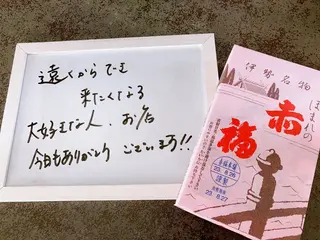 遠くからでも
来たくなる
大好きな人、お店
今日もありがとう ございます!!
伊勢名物
ほまれの
赤福